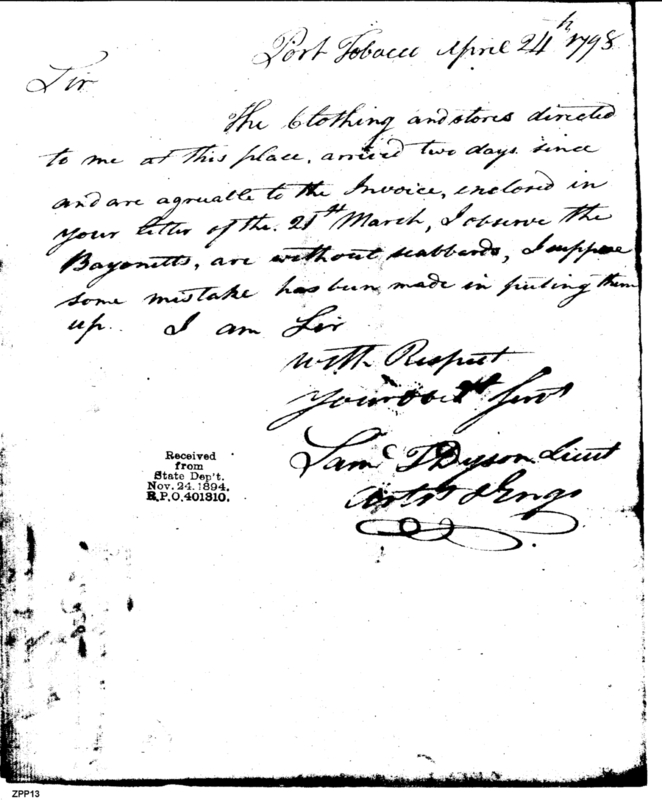 Port Tobacco April 24th 1798
Sir
The Clothing and stores directed
to me at this place, arrived two days since
and are agruable to the Invoice, enclosed in
your letter of the 21st March, I observe the
Bayonetts, are without scabbards, I suppose
some mistake has been made in puting them
up. I am Sir
with Respect
your obedt Servt
Saml T Dyson Lieut
Artrs & Engs
Received
from
State Dep't.
Nov. 24. 1894.
R.P.O. 401310.
ZPP13